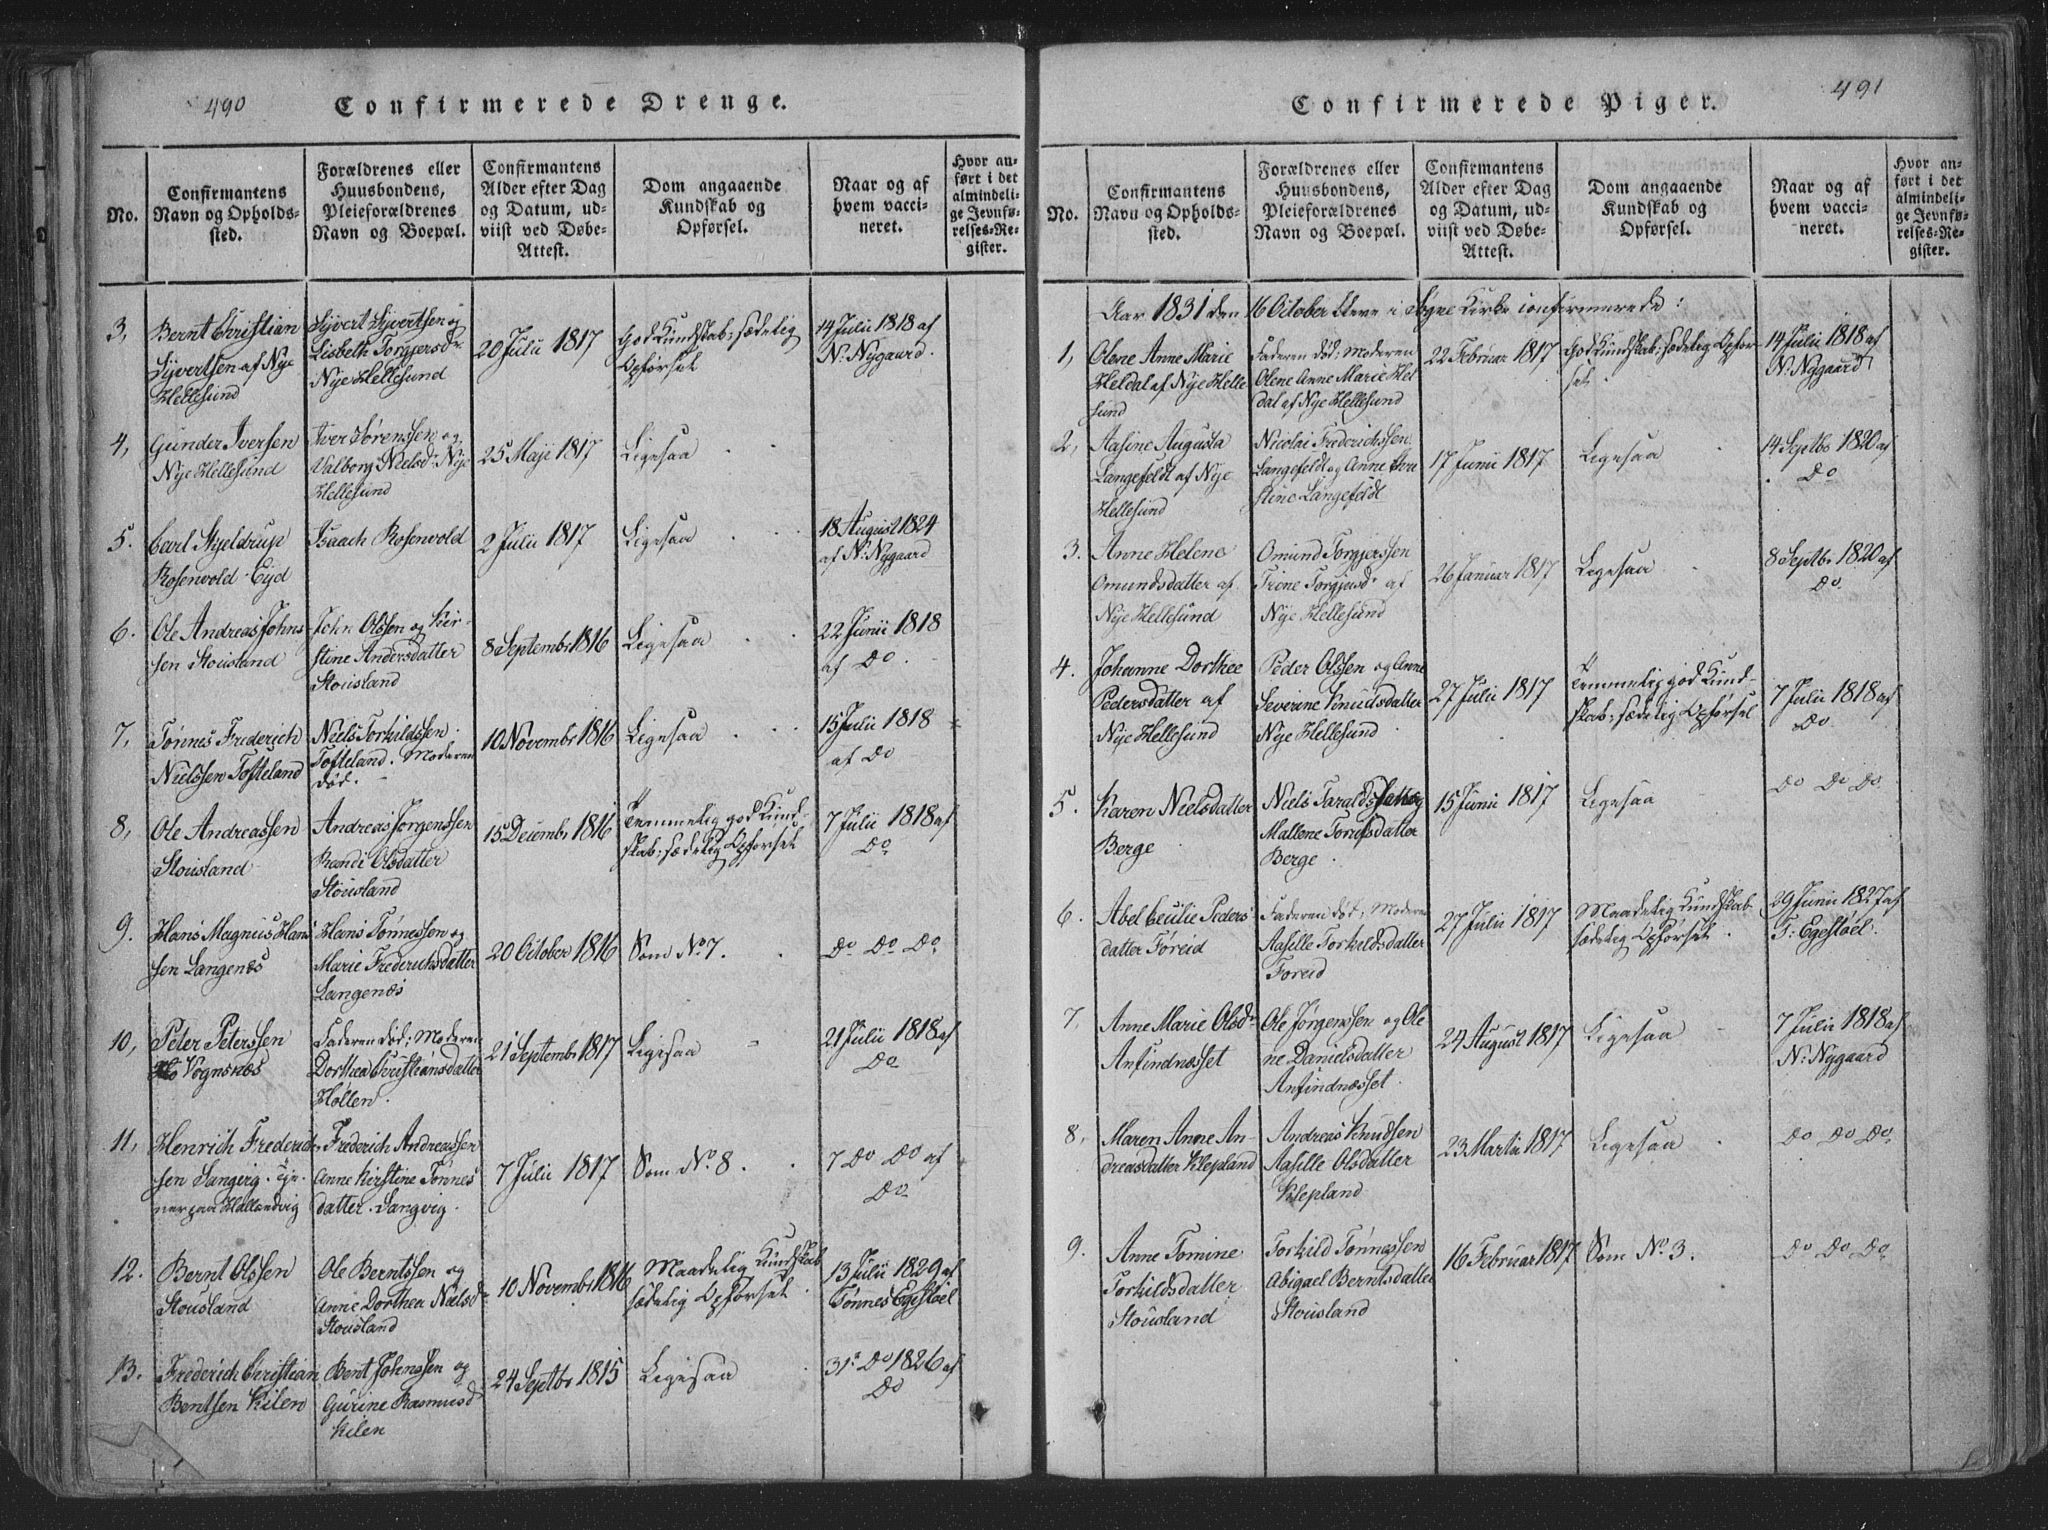 490
Confirmerede Drenge.
No.
Confirmantens
Navn og Opholds-
sted.
Forældrenes eller
Huusbondens,
Pleieforældrenes
Navn og Boepæl.
Confirmantens
Alder efter Dag
og Datum, ud-
viist ved Døbe-
Attest.
Dom angaaende
Kundskab og
Opførsel.
Naar og af
hvem vacci-
neret.
Hvor an-
ført i det
almindeli-
ge Jevnfø-
relses-Re-
gister.
3,
Bernt Christian
Syvertsen af Nye
Hellesund
Syvert Syvertsen og
Lisbeth Torgjersdr
Nye Hellesund
20 Julii 1817
God Kundskab; sædelig
Opførsel
14 Julii 1818 af
N: Nygaard.
4,
Gunder Iversen
Nye Hellesund
Iver Sørenssen og
Valborg Nielsdr Nye
Hellesund
25 Maji 1817
Ligesaa
5.
Carl Stjeldrup
Rosenvold Eyd
Isaach Rosenvold
2 Julii 1817
Ligesaa
18 August 1824
af N: Nygaard
6.
Ole Andreas Johns
sen Stousland
John Olssen og Kir-
stine Andersdatter
Stousland
8 Septembr 1816
Ligesaa
22 Junii 1818
af Do.
7,
Tønnes Frederich
Nielssen Tofteland
Niels Torkildssen
Tofteland. Moderen
død.
10 Novembr 1816
Ligesaa
15 Julii 1818
af Do
8,
Ole Andreassen
Stousland
Andreas Jørgenssen
Randi Olsdatter
Stousland
15 Decembr 1816
Temmelig god Kund-
skab; sædelig Opførsel
7 Julii 1818 af
Do
9.
Hans Magnus Hans
sen Langenæs
Hans Tønnessen og
Marie Frederichsdatter
Langenæs
20 October 1816
Som No 7.
Do Do Do
10,
Peter Peterssen
Vognsnæs
Faderen død; Moderen
Dorthea Christiansdatter
Høllen.
21 Septembr 1817
Ligesaa
21 Julii 1818 af
Do
11,
Henrich Frederich-
sen Langvig. tje-
ner paa Hallandvig
Frederich Andreassen
Anne Kirstine Tønnes
datter. Langvig.
7 Julii 1817
Som No. 8.
7 Do Do af
Do
12.
Bernt Olssen
Stousland
Ole Berntssen og
Anne Dorthea Nielsdr
Stousland
10 Novembr 1816
Maadelig Kundskab
sædelig Opførsel
13 Julii 1829 af
Tønnes Egestøel
13.
Frederich Christian
Bentsen Kilen
Bent Johnssen og
Gurine Rasmusd
Kilen
24 Septbr 1815
Ligesaa
31 Do 1826 af
Do
491
Confirmerede Piger.
No.
Confirmantens
Navn og Opholds-
sted.
Forældrenes eller
Huusbondens,
Pleieforældrenes
Navn og Boepæl.
Confirmantens
Alder efter Dag
og Datum, ud-
viist ved Døbe-
Attest.
Dom angaaende
Kundskab og
Opførsel.
Naar og af
hvem vacci-
neret.
Hvor an-
ført i det
almindeli-
ge Jevnfø-
relses-Re-
gister.
Aar 1831 den 16 October bleve i Søgne Kirke confirmerede:
1,
Olene Anne Marie
Heldal af Nye Helle
sund
Faderen død; Moderen
Olene Anne Marie Hel
dal af Nye Hellesund
22 Februar 1817
God Kundskab; sædelig Opfør-
sel
14 Julii 1818 af
N: Nygaard
2,
Aasine Augusta
Langefeldt af Nye
Hellesund
Nicolai Frederichssen
Langefeldt og Anne Chri
stine Langefeldt
17 Junii 1817
Ligesaa
14 Septbr 1820 af
Do
3.
Anne Helene
Omundsdatter af
Nye Hellesund
Omund Torgjerssen
Trine Torgjersdr af
Nye Hellesund
26 Januar 1817
Ligesaa
8 Septbr 1820 af
Do.
4.
Johanne Dorthee
Pedersdatter af
Nye Hellesund
Peder Olssen og Anne
Severine Knudsdatter
Nye Hellesund
27 Julii 1817
Temmelig god Kund-
skab; sædelig Opførsel
7 Julii 1818 af
Do.
5.
Karen Nielsdatter
Berge
Niels Taraldssen og
Mallene Torufsdatter
Berge
15 Junii 1817
Ligesaa
Do Do Do
6.
Abel Cecilie Peders
datter Føreid
Faderen død; Moderen
Aasille Torkildsdatter
Foreid
27 Julii 1817
Maadelig Kundskab
sædelig Opførsel
29 Junii 1827 af
T: Egestøel.
7,
Anne Marie Olsdr
Anfindnæsset
Ole Jørgenssen og Ole
ne Danielsdatter
Anfindnæsset.
24 August 1817
Ligesaa
7 Julii 1818 af
N: Nygaard
8,
Maren Anne An-
dreasdatter Klepland
Andreas Knudsen
Aasille Olsdatter
Klepland
23 Martii 1817
Ligesaa
Do Do Do
9.
Anne Tomine
Torkildsdatter
Stousland
Torkild Tønnessen
Abigael Berntsdatter
Stousland
16 Februar 1817
Som No. 3.
Do Do Do